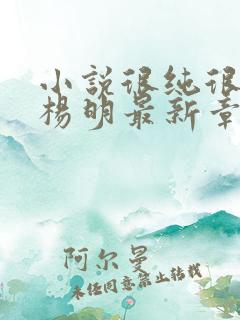 小说很纯很
杨明最新章
阿尔曼
未经同意禁止转载